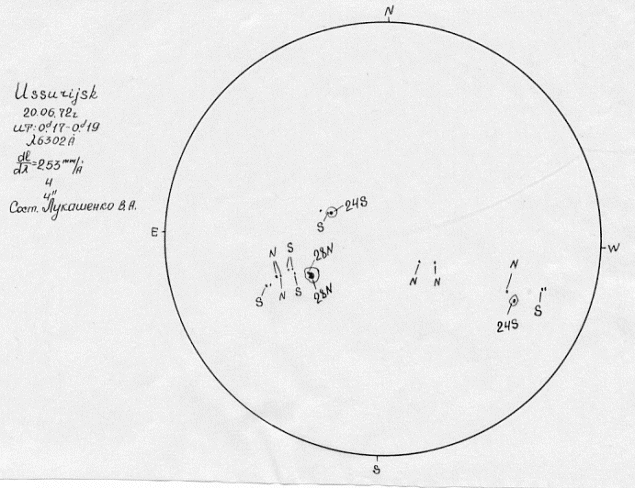 Ussurijsk
20.06.72г.
UT: 0,d17-0,d19
λ6302Å
dl/dλ=2,53 mm/Å
4
4"
Сост. Лукашенко В.А.
N
24S
S
E
W
N
S
28N
N
S
N
S
28N
N
N
N
24S
S
S